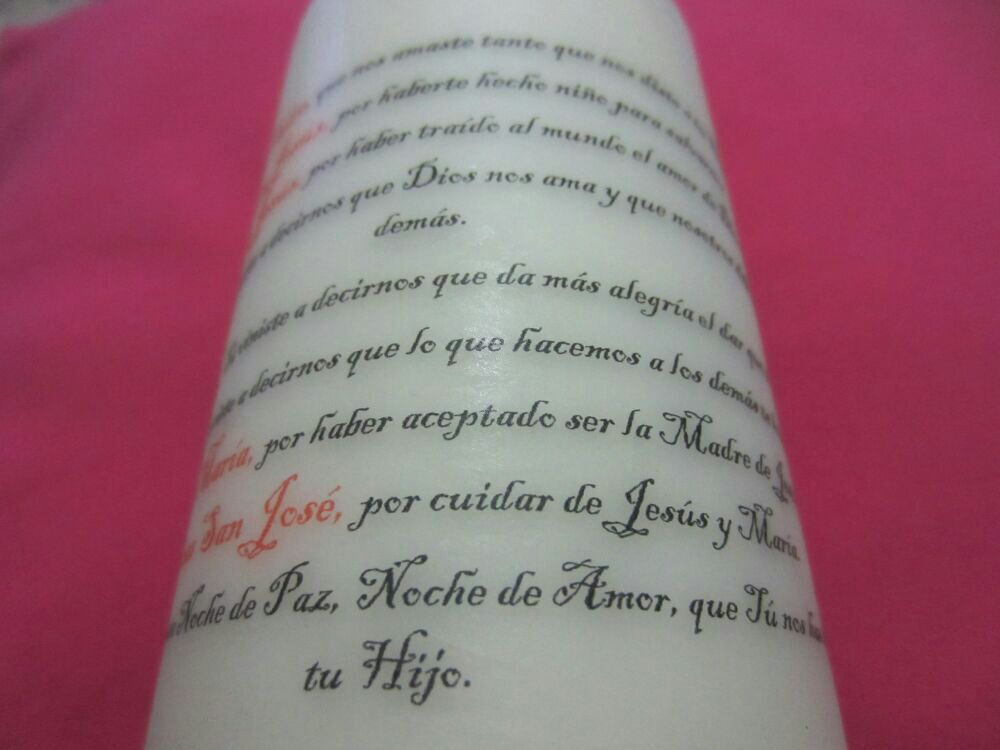 que nos amaste tanto que nos diste a tu
Jesús, por haberte hecho niño para salvarnos
Jesús, por haber traído al mundo el amor de
a decirnos que Dios nos ama y que nosotros
demás.
viniste a decirnos que da más alegría el dar que
a decirnos que lo que hacemos a los demás
María, por haber aceptado ser la Madre de
San José, por cuidar de Jesús y María.
Noche de Paz, Noche de Amor, que Tú nos
tu Hijo.